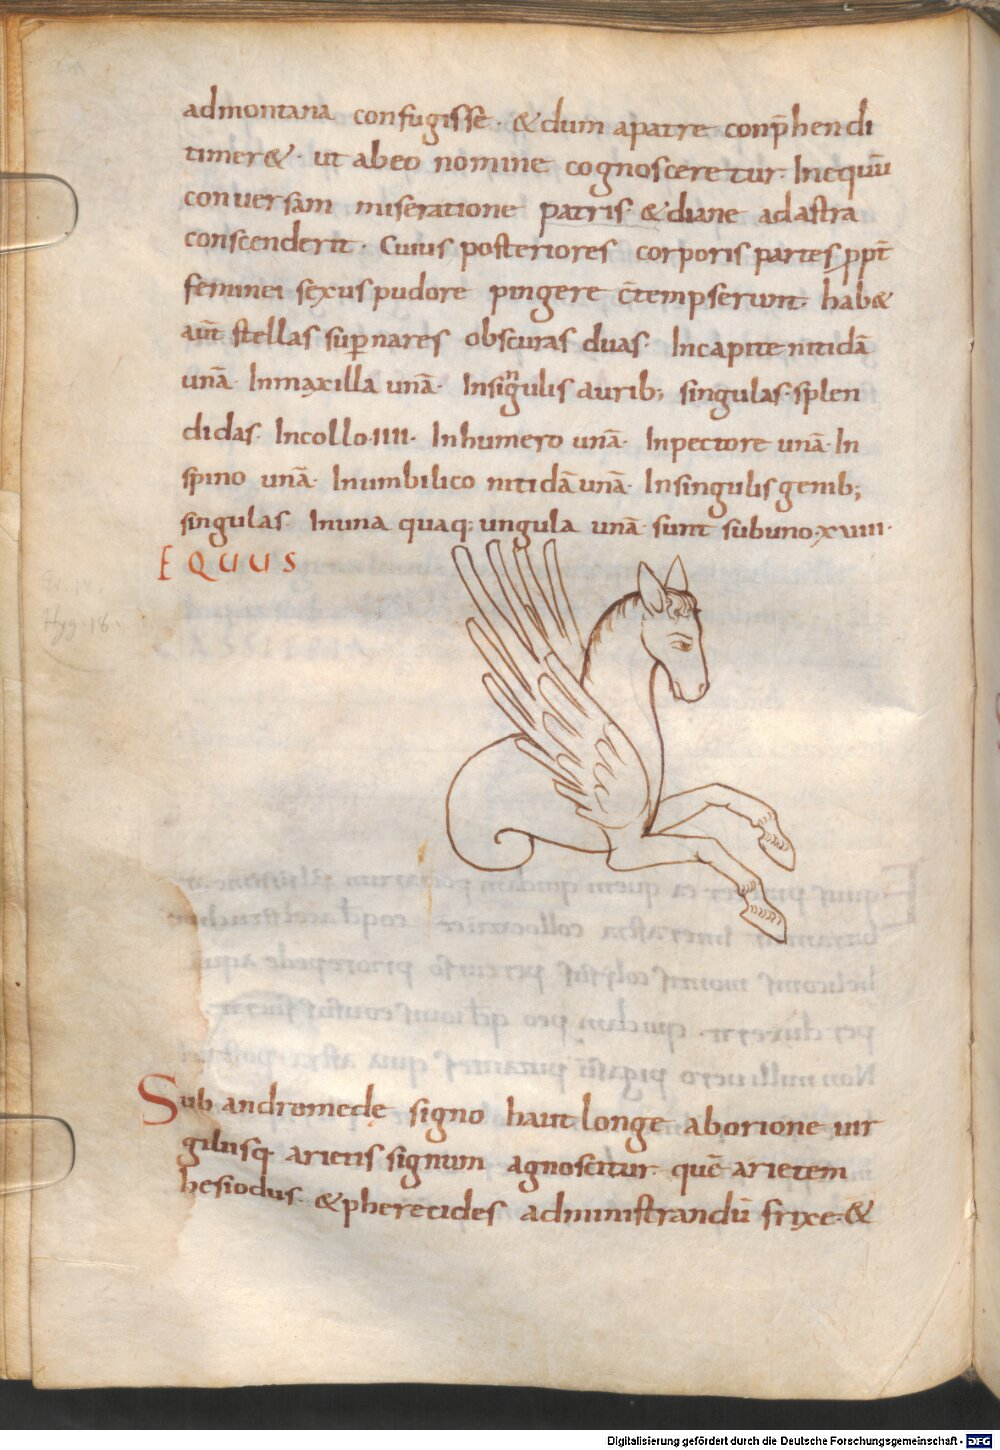 admontana confugisse · & dum apatre conp̄hendi
timer& · ut abeo nomine cognosceretur · Inequū
conuersam miseratione patris · & diane adastra
conscenderit · Cuius posteriores corporis partes ꝓpt̄
feminei sexus pudore pingere c̄tempserunt · hab&
aut̄ stellas suꝑnares obscuras duas · Incapite nitidā
unā · Inmaxilla unā · Insigulis aurib; singulas · splen
didas · Incollo · IIII · Inhumero unā · Inpectore unā · In
spino unā · Inumbilico nitidā unā · Insingulis genib;
singulas · Inuna quaq; ungula unā · sunt subuno · xviiii ·
EQUUS
Eq. 18.
Hyg. 18.
Sub andromede signo haut longe aborione uir
giliisq · arietis signum agnoscitur · quē arietem
hesiodus · & pherecides administrandū frixe · &
Digitalisierung gefördert durch die Deutsche Forschungsgemeinschaft - DFG